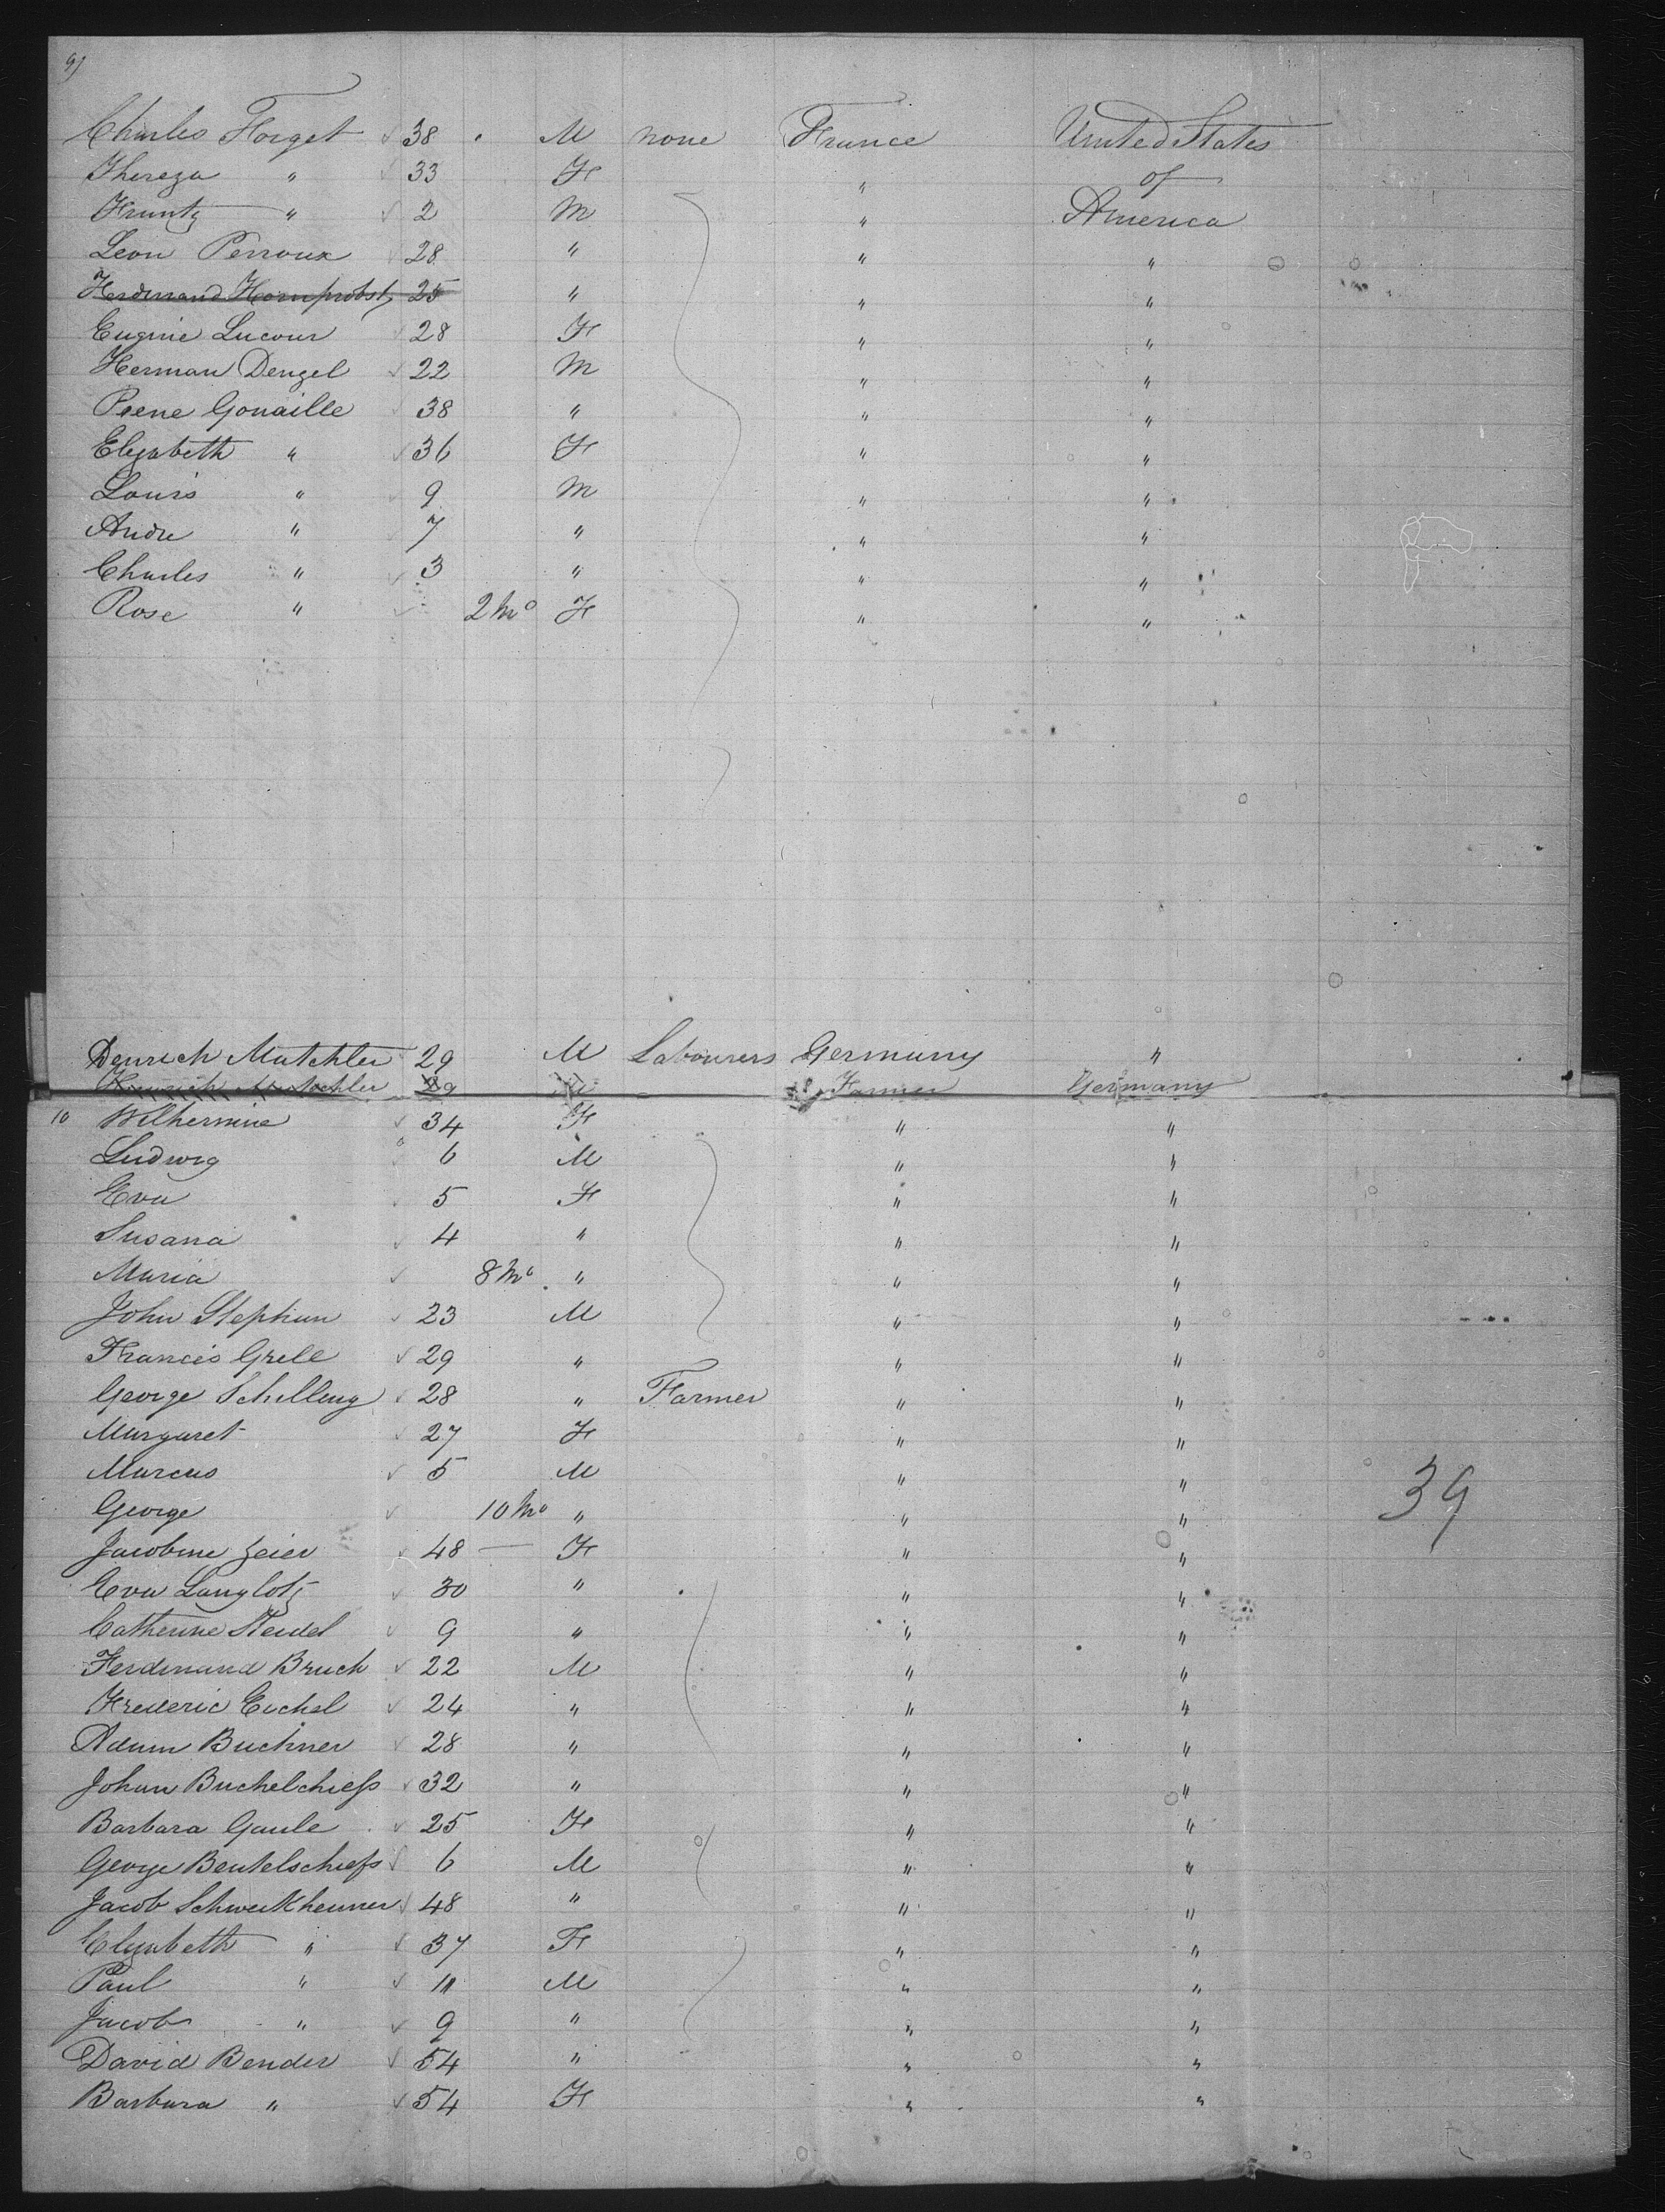 9)
Charles Forget 38 M none France United States
Thereza " 33 F " of
Frantz " 2 M " America
Leon Perroux 28 " " "
Ferdinand Hornprobst 25 " " "
Eugenie Lucour 28 F " "
Herman Dengel 22 M " "
Peene Gonaille 38 " " "
Elizabeth " 36 F " "
Louis " 9 M " "
Andre " 7 " " "
Charles " 3 " " "
Rose " 2 Mo F " "
Denrich Mutchler 29 M Labourers Germany "
Heinrich Mutschler 29 M Farmer Germany
10 Wilhermine 34 F " "
Ludwig 6 M " "
Eva 5 F " "
Susana 4 " " "
Maria 8 Mo " " "
John Stephan 23 M " "
Francis Grell 29 " " "
George Schilling 28 " Farmer " "
Margaret 27 F " "
Marcus 5 M " "
George 10 Mo " " "
Jacobine Zeier 48 — F " "
Eva Langlotz 30 " " "
Catherine Steidel 9 " " "
Ferdinand Bruch 22 M " "
Frederic Eichel 24 " " "
Adam Buchner 28 " " "
Johan Buchelchiess 32 " " "
Barbara Gaule 25 F " "
George Beutelschiess 6 M " "
Jacob Schweikheimer 48 " " "
Elizabeth " 37 F " "
Paul " 11 M " "
Jacob " 9 " " "
David Bender 54 " " "
Barbara " 54 F " "
39